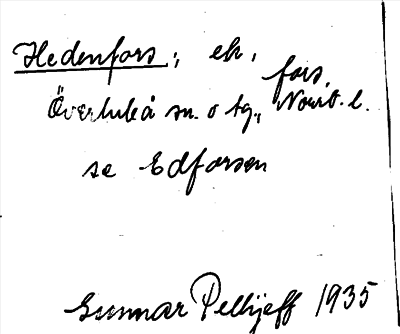 Hedenfors; ek, fors,
Överluleå sn. o tg., Norrb. l.
se Edforsen
Gunnar Pellijeff 1935